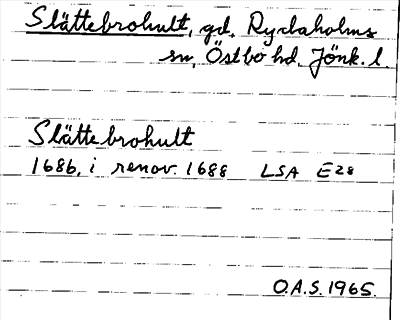 Slättebrohult, gd. Rydaholms
sn, Östbo hd. Jönk. l.
Slättebrohult
1686, i renov. 1688 LSA E28
O.A.S. 1965.